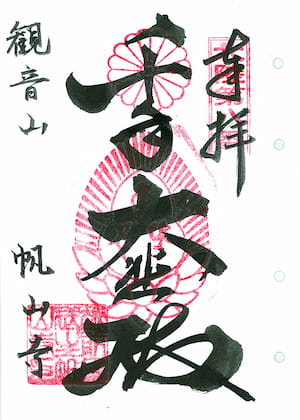 奉拝
千手大悲殿
観音山
帆山寺